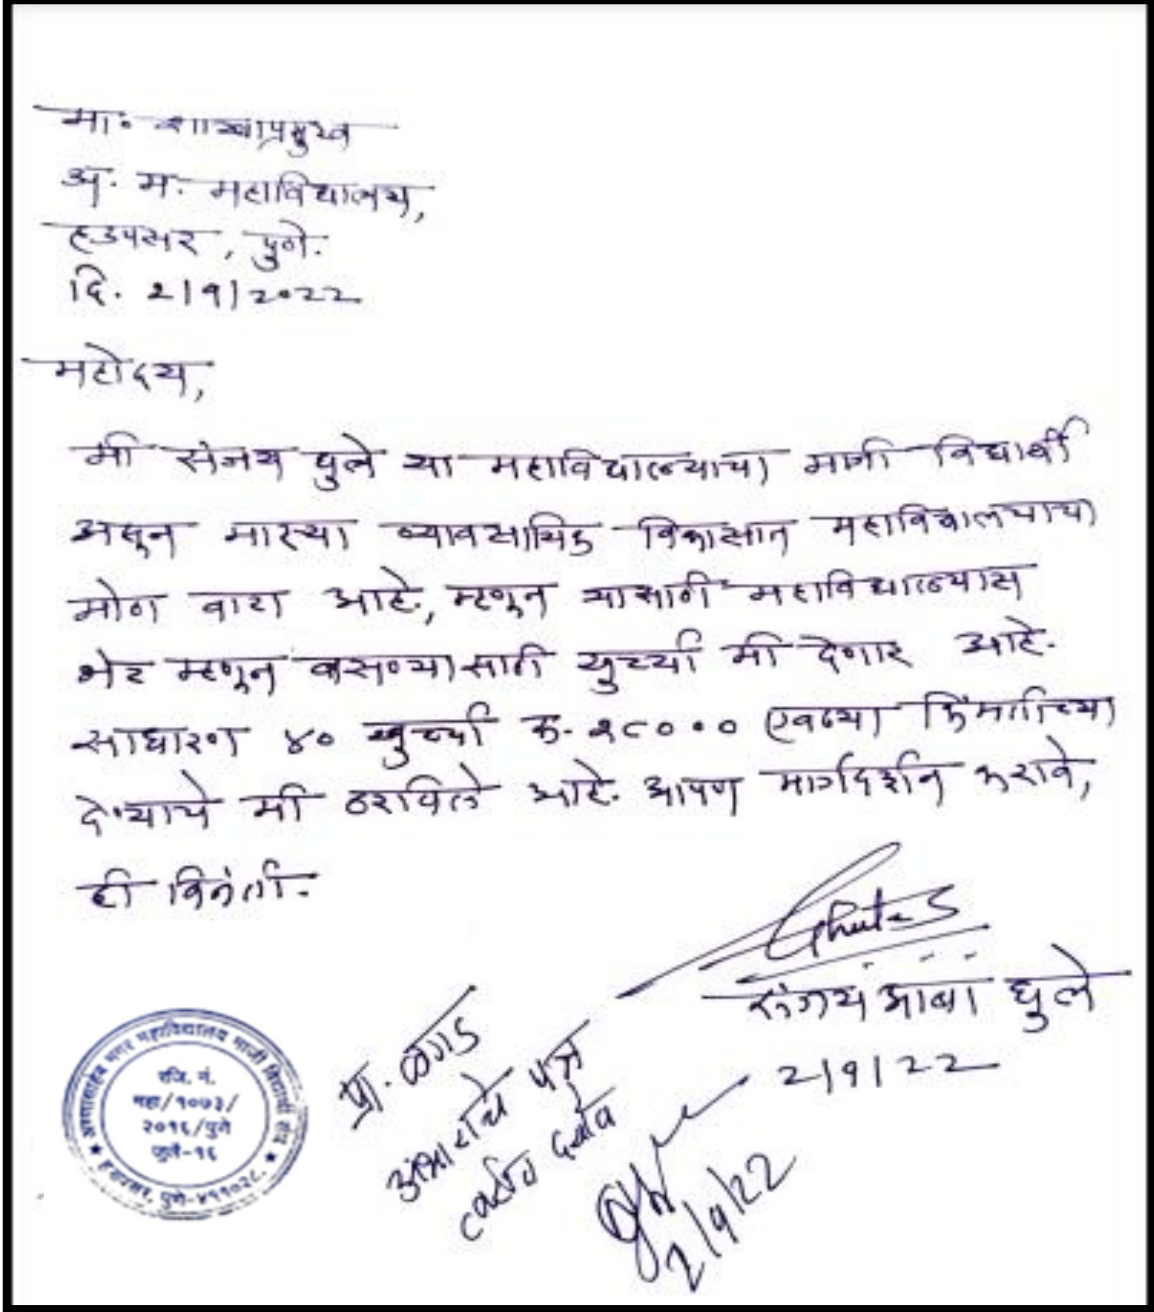 मा. शाखाप्रमुख
अ. म. महाविद्यालय,
हडपसर, पुणे.
दि. २/९/२०२२
महोदय,
मी संजय घुले या महाविद्यालयाचा माजी विद्यार्थी
असून माझ्या व्यावसायिक विकासात महाविद्यालयाचा
मोठा वाटा आहे, म्हणून यासाठी महाविद्यालयास
भेट म्हणून बसण्यासाठी खुर्च्या मी देणार आहे.
साधारण ४० खुर्च्या रु. १८००० एवढ्या किंमतीच्या
देण्याचे मी ठरविले आहे. आपण मार्गदर्शन करावे,
ही विनंती.
Ghule S
संजय आबा घुले
२/९/२२
प्रा.
आभाराचे पत्र
2/9/22
अण्णासाहेब मगर महाविद्यालय माजी विद्यार्थी संघ
रजि. नं.
महा/१०७३/
२०१६/पुणे
जुलै-१६
★ हडपसर, पुणे-४११०२८. ★